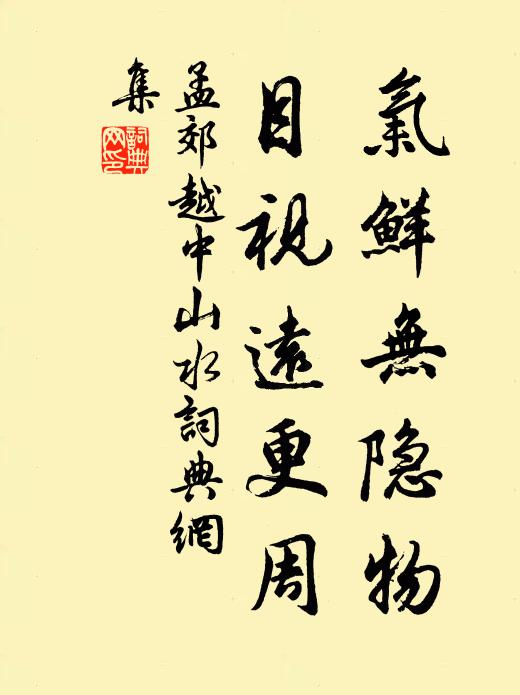 氣鮮無隐物
目視遠更周
孟郊越中山水詞典網
集
詞典
网印